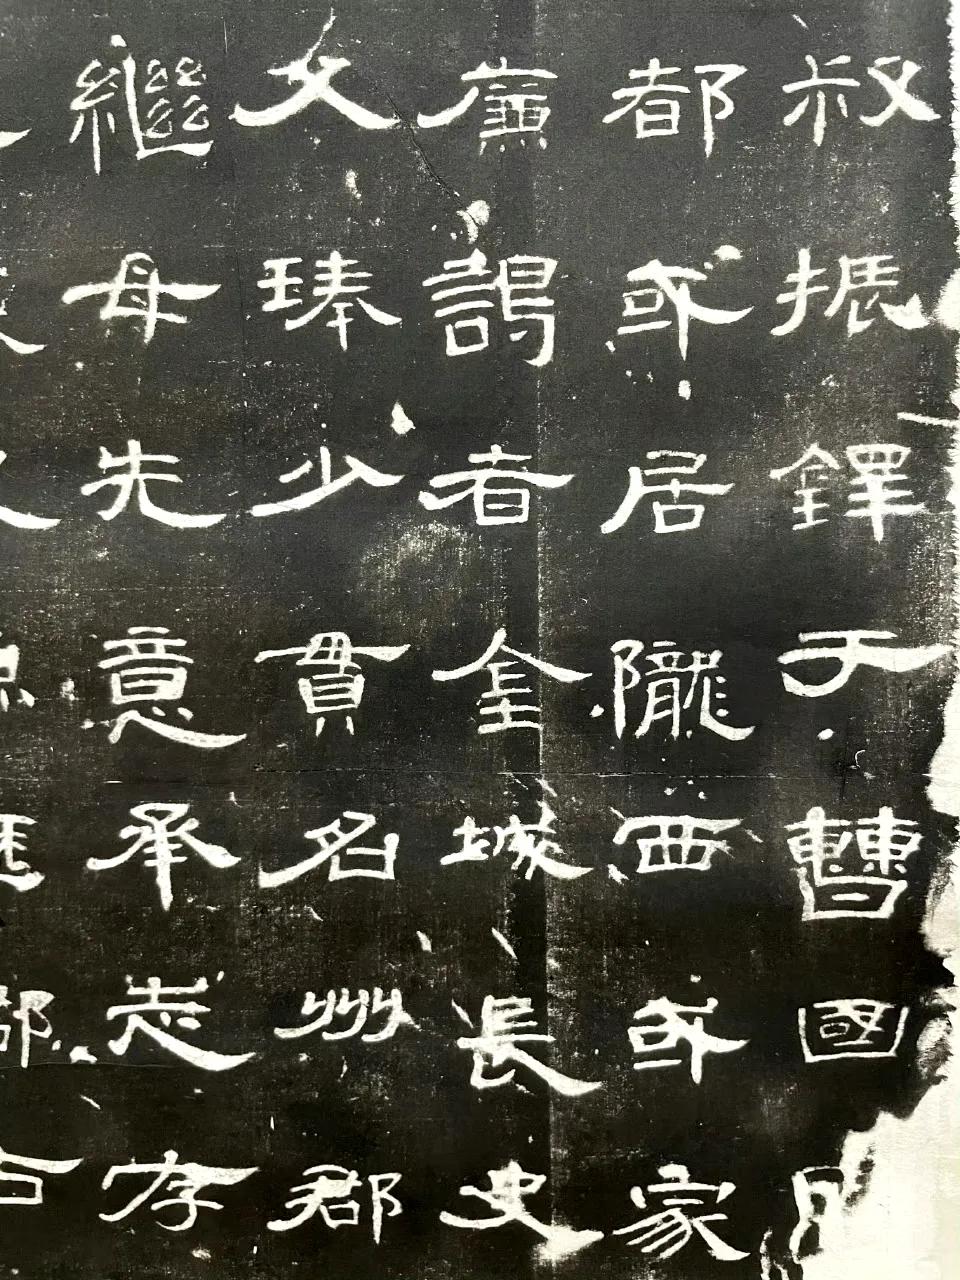 叔振鐸于曹國
都或居隴西或家
廉謁者金城長史
父琫少貫名州郡
繼母先意承志存